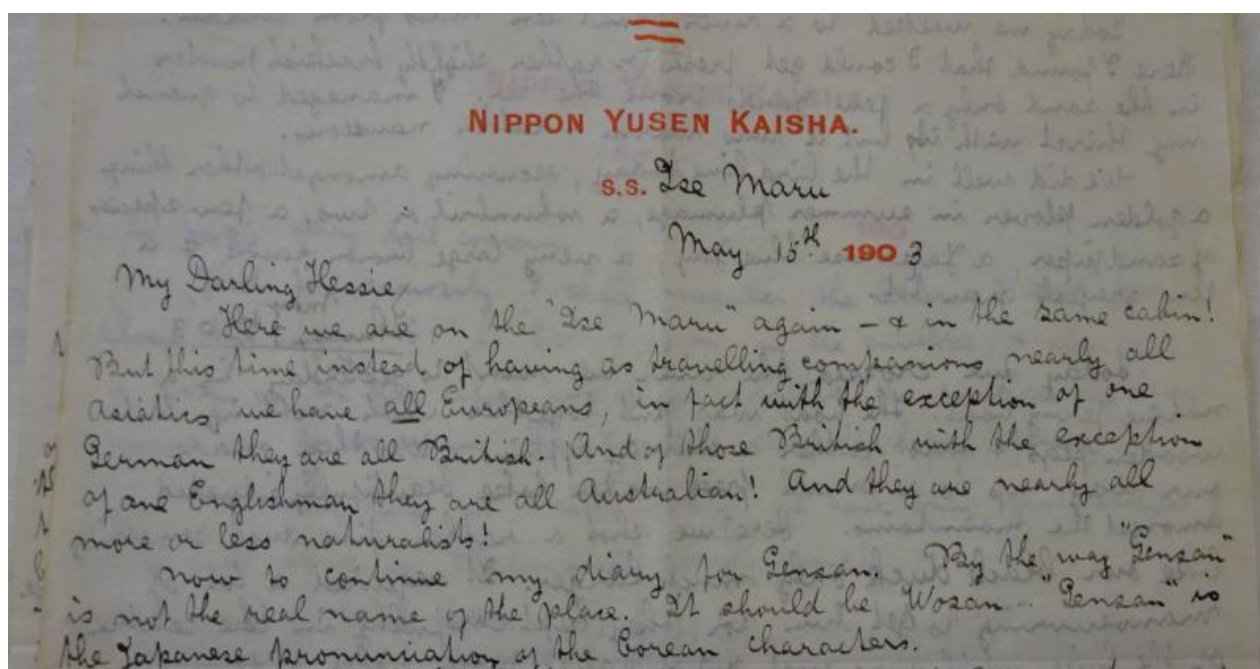 NIPPON YUSEN KAISHA.
S.S. Ise Maru
May 15th 1903
My Darling Hessie
Here we are on the "Ise Maru" again - & in the same cabin!
But this time instead of having as travelling companions nearly all
Asiatics, we have all Europeans, in fact with the exception of one
German they are all British. And of those British with the exception
of one Englishman they are all Australian! And they are nearly all
more or less naturalists!
Now to continue my diary for Gensan. By the way "Gensan"
is not the real name of the place. It should be Wozan. "Gensan" is
the Japanese pronunciation of the Corean characters.